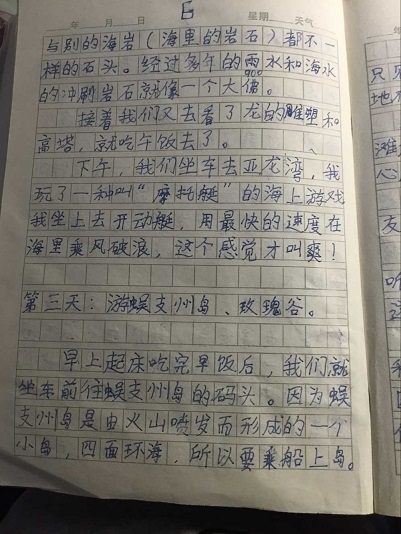 6
年 月 日 星期 天气
与别的海岩（海里的岩石）都不一
样的石头。经过多年的雨水和海水
的冲刷岩石就像一个大佛。
接着我们又去看了龙的雕塑和
高塔，就吃午饭去了。
下午，我们坐车去亚龙湾，我
玩了一种叫“摩托艇”的海上游戏
我坐上去开动艇，用最快的速度在
海里乘风破浪，这个感觉才叫爽！
第三天：游蜈支州岛、玫瑰谷。
早上起床吃完早饭后，我们就
坐车前往蜈支州岛的码头。因为蜈
支州岛是由火山喷发而形成的一个
小岛，四面环海，所以要乘船上岛。